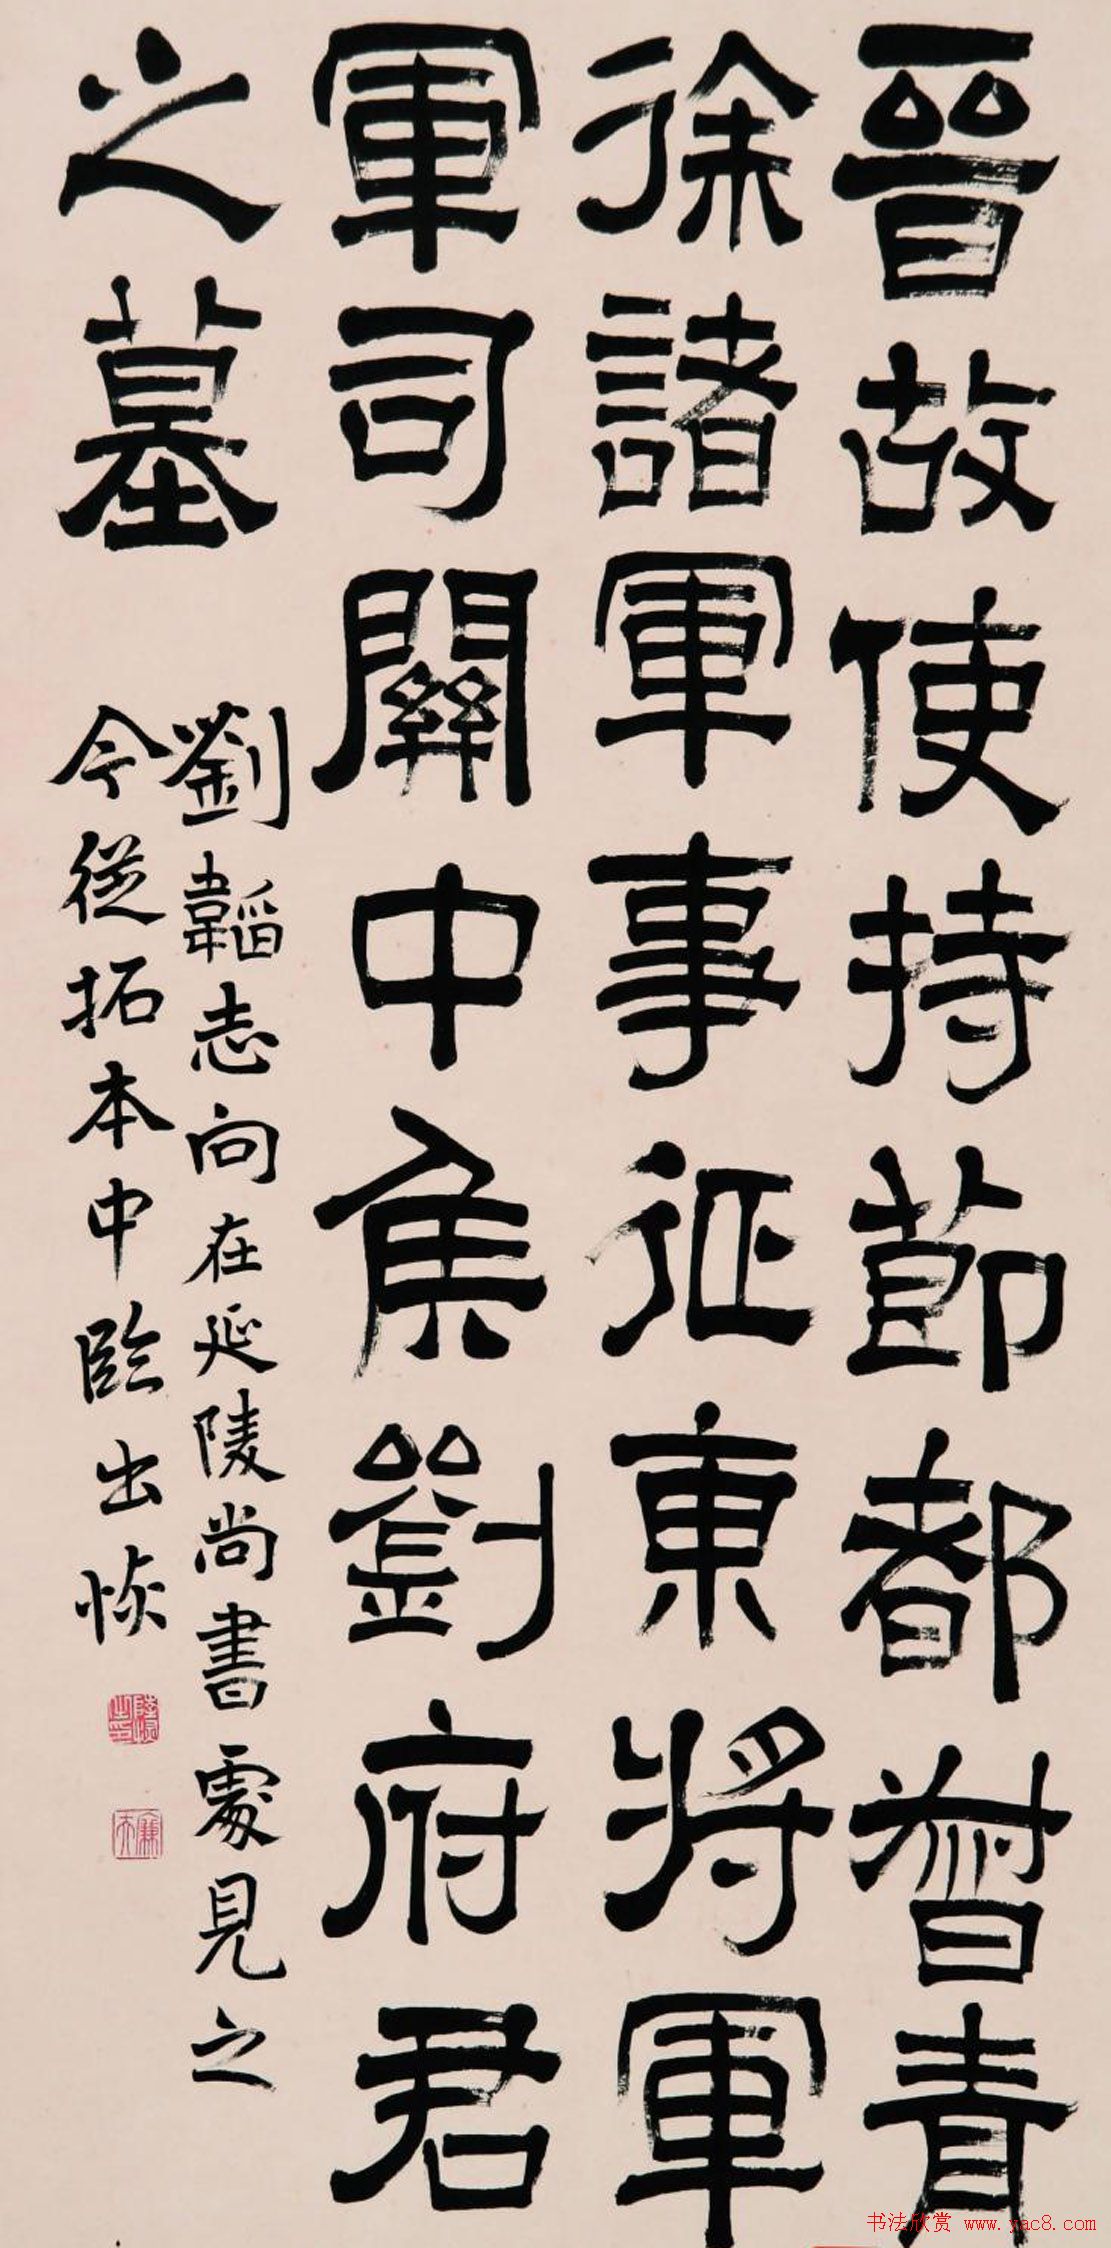 晉故使持節都督青
徐諸軍事征東將軍
軍司關中侯劉府君
之墓
劉韜志向在延陵尚書處見之
今從拓本中臨出恢
书法欣赏 www.yac8.com